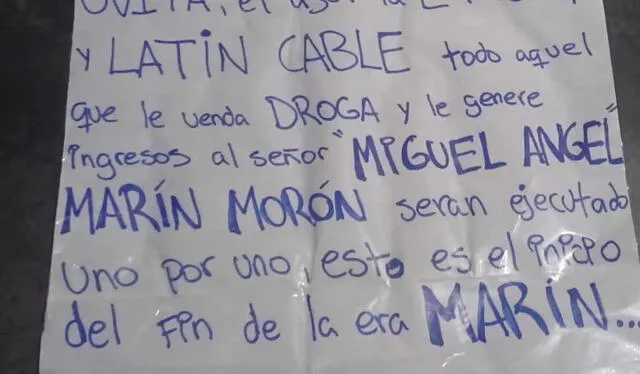 y LATIN CABLE todo aquel
que le venda DROGA y le genere
ingresos al señor "MIGUEL ANGEL"
MARÍN MORÓN seran ejecutado
uno por uno, esto es el inicio
del Fin de la era MARÍN...